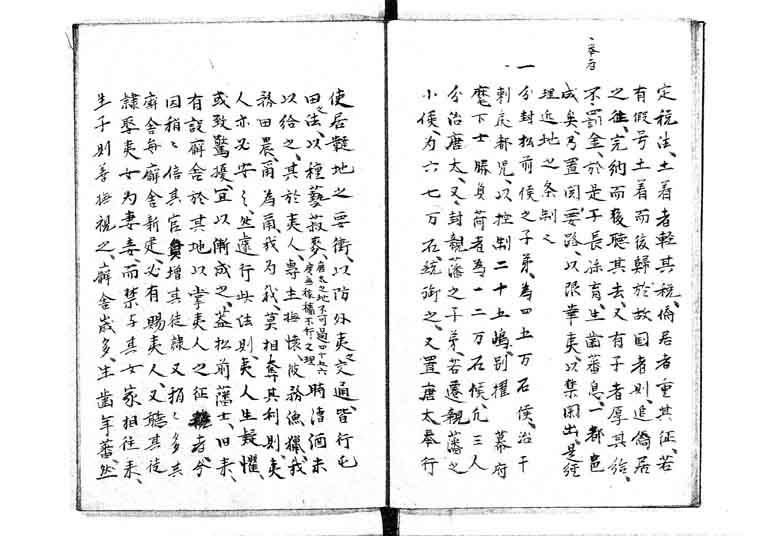 定税法、土着者軽其税、僑居者重其征、若
有仮号土着而後歸於故国者、則追僑居
之往完納而後聴其去、又有子者厚其給、
不罰金、於是子長添育、生歯蕃息、一都邑
成矣、乃置関要路、以限華夷、以集閑出、是経
理近地之条制也
一 分封松前侯之子弟、為四五万石侯、治于
都児、以控制二十五嶋、別擢 幕府
麾下士勝負荷者、為一二万石侯、凡三人
分治唐太、又封親藩之子弟、若遷親藩之
小侯、為六七万石、統御之、又置唐太奉行
使居難地之要衝、以防外夷之交通、皆行屯
田之法、以種藝菽麥、時漕酒米
以給之、其於夷人、専主撫懐、彼務漁猟、我
務田農、爾為爾、我為我、莫相奪其利、則夷
人亦必安之、然遽行此法、則夷人生疑懼、
或致驚擾、宜以漸成之、蓋松前藩士、旧来
有設廨舎於其地、以掌夷人之征者、今
因稍々倍其官員、増其徒隷、又稍々多其
廨舎、毎廨舎新建、必有賜夷人、又聴其徒
隷娶夷女為妻妾、而禁与其女家相往来、
生子則善撫視之、廨舎歳多、生歯年蕃、然